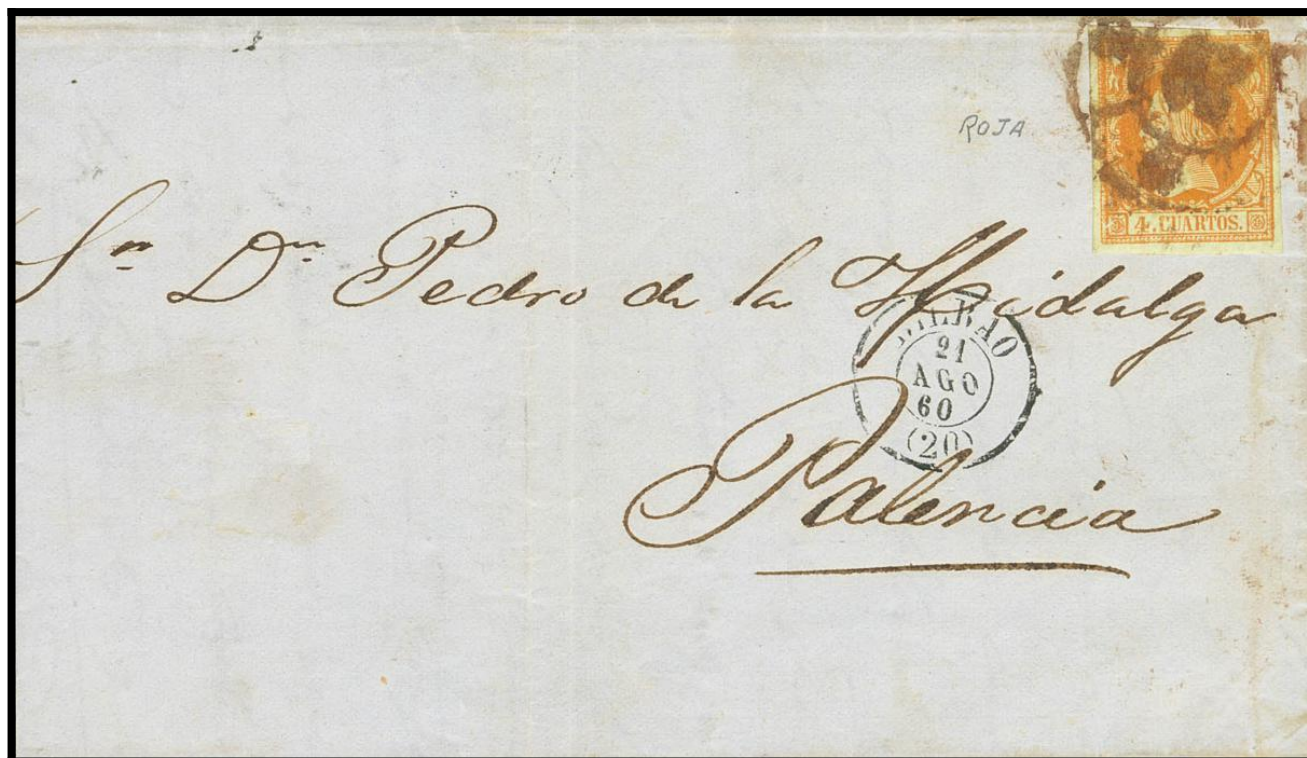 ROJA
4 CUARTOS.
Sn Dn Pedro de la Hidalga
BILBAO
21
AGO
60
(20)
Palencia